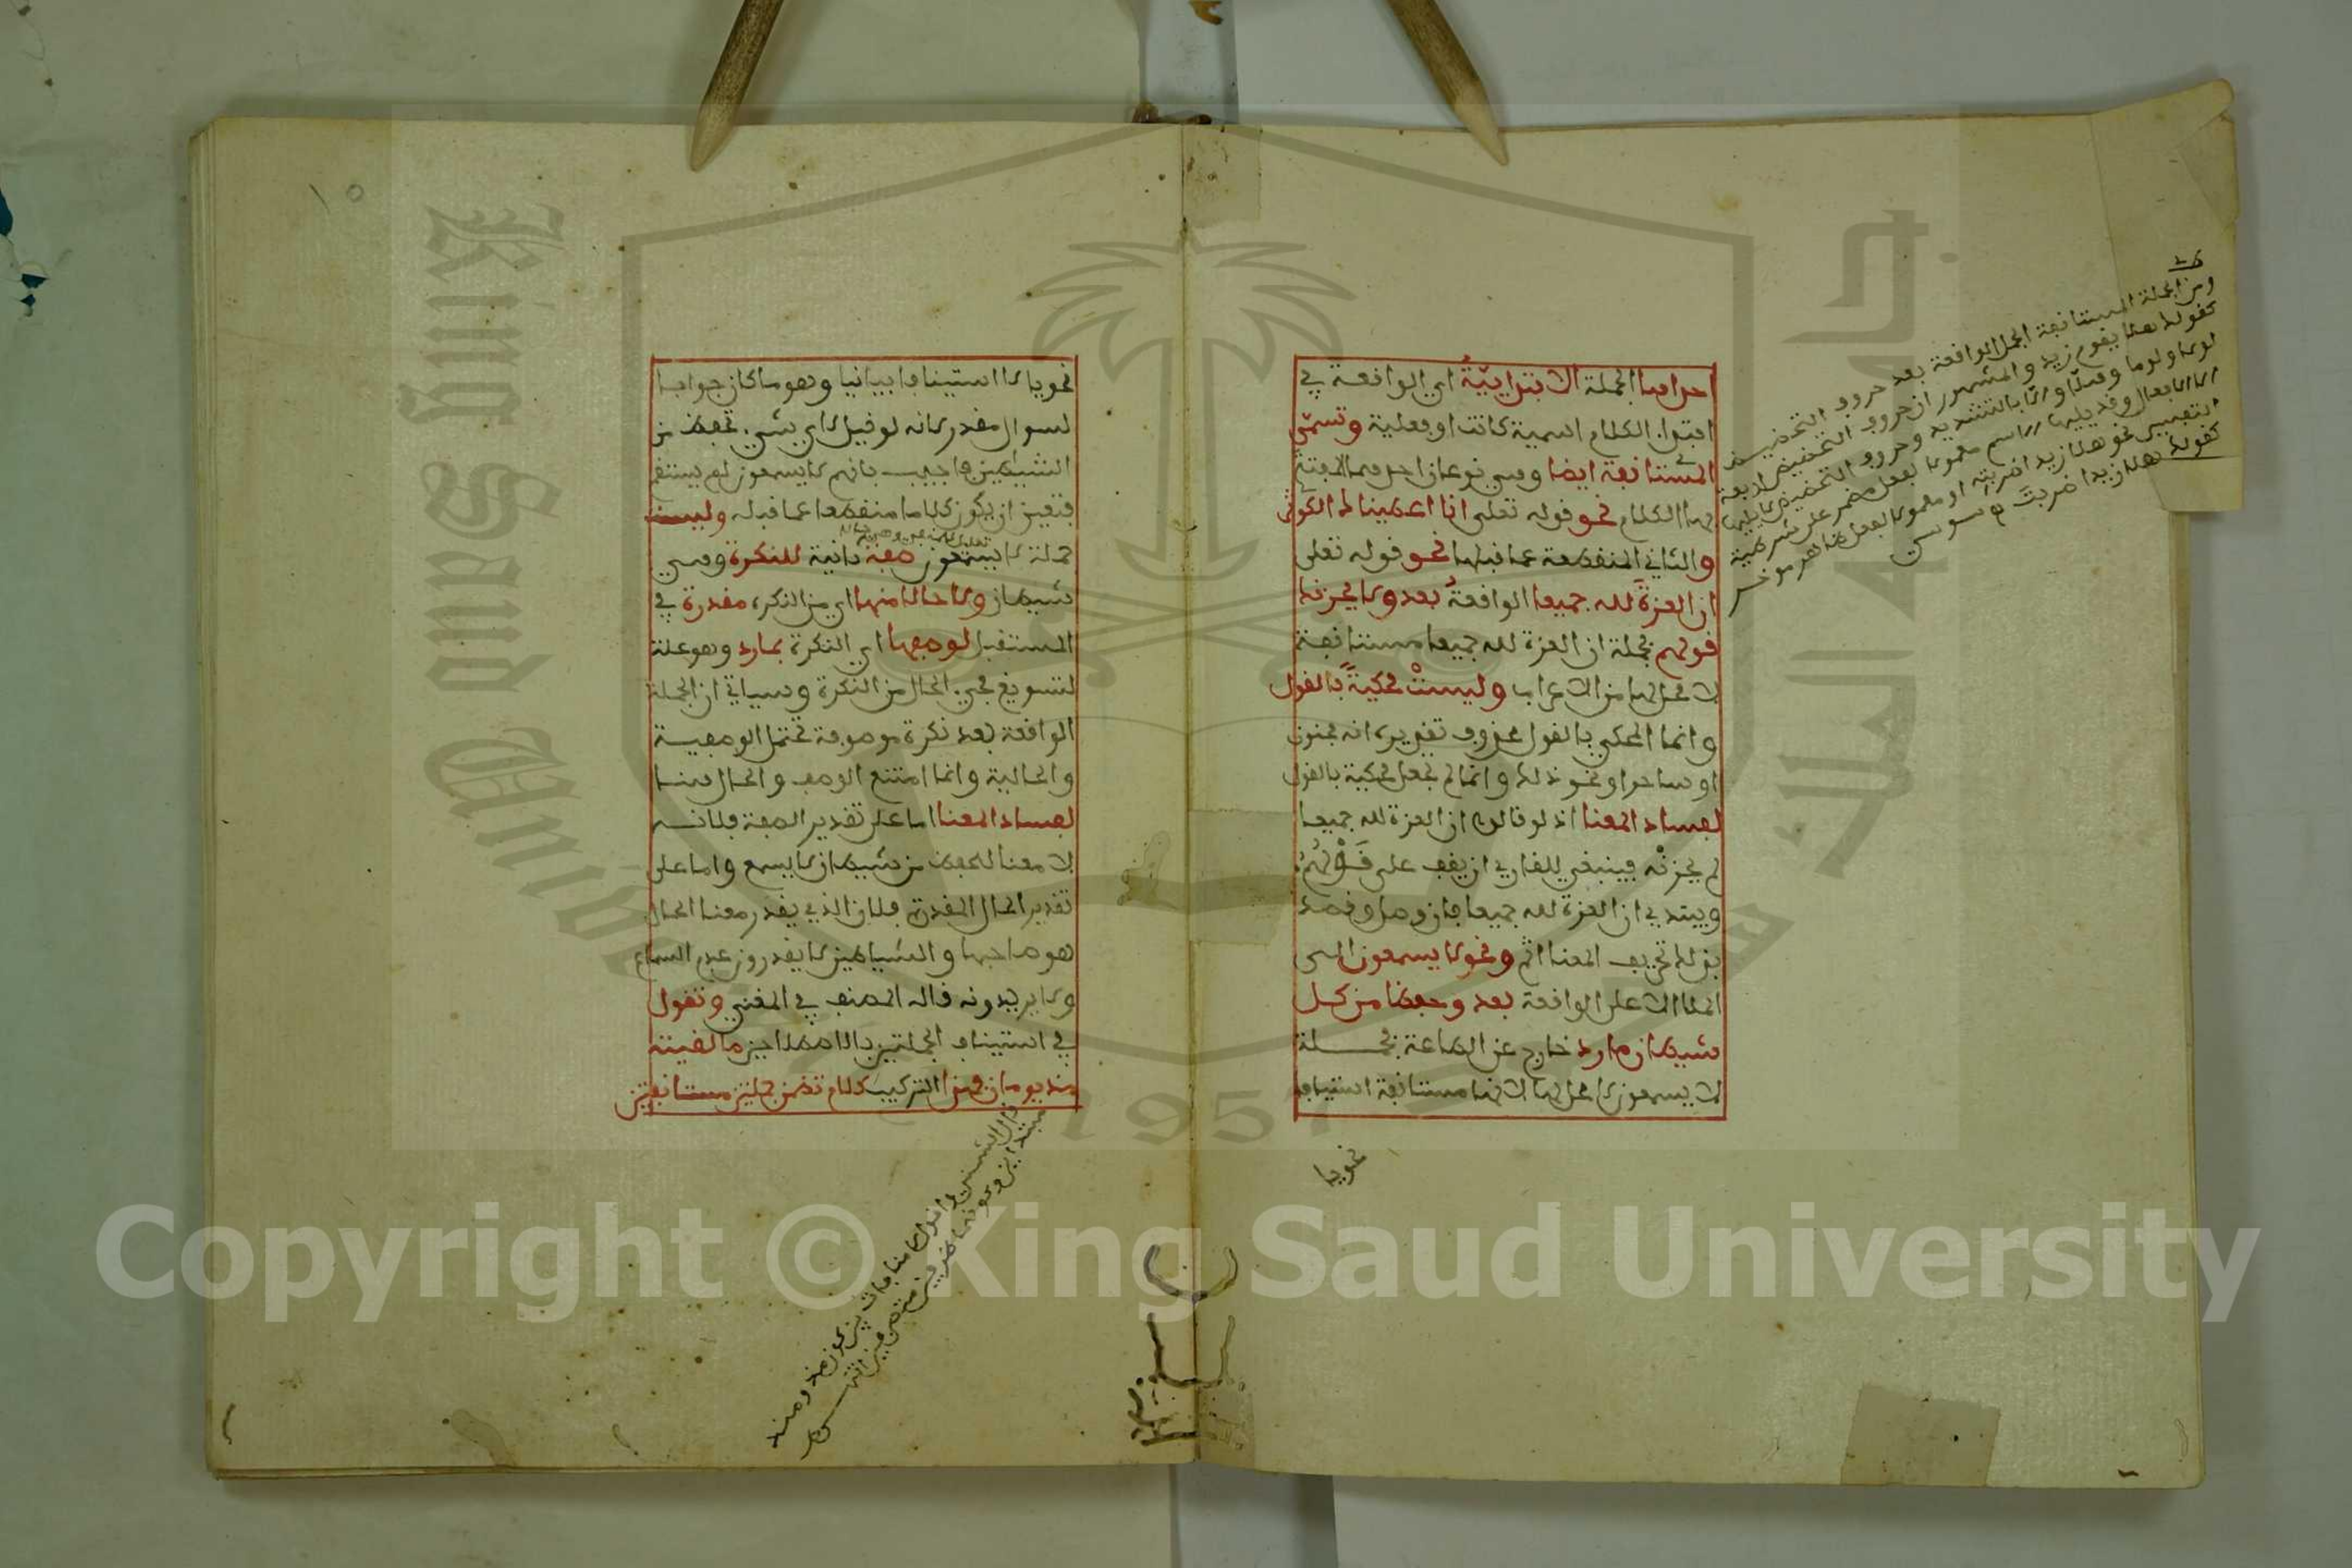 احداها الجملة الابتدائية اي الواقعة في
ابتداء الكلام اسمية كانت او فعلية وتسمى
المستانفة ايضا وهي نوعان احدهما المفتتح
بها الكلام نحو قوله تعلى انا اعطيناك الكوثر
والثاني المنقطعة عما قبلها نحو قوله تعلى
ان العزة لله جميعا الواقعة بعد ولا يحزنك
قولهم فجملة ان العزة لله جميعا مستانفة
لا محل لها من الاعراب وليست محكية بالقول
وانما المحكي بالقول محذوف تقديره انه مجنون
او ساحر او نحو ذلك وانما لم تجعل محكية بالقول
لفساد المعنا اذ لو قالوا ان العزة لله جميعا
لم يحزنه فينبغي للقاري ان يقف على قولهم
ويبتدي ان العزة لله جميعا فان وصل وقصد
بذلك تحريف المعنا اثم ونحو لا يسمعون الى
الملا الاعلى الواقعة بعد وحفظا من كل
شيطان مارد خارج عن الطاعة فجملة
لا يسمعون لا محل لها لانها مستانفة استينافا
نحويا
ومن الجملة المستانفة الجمل الواقعة بعد حروف التحضيض
كقولك هلا يقوم زيد والمشهور ان حروف التحضيض اربعة
لولا ولوما وهلا والا بالتشديد وحروف التحضيض لا يليها
الا الافعال وقد يليها اسم معمولا لفعل مضمر على شريطة
التفسير نحو هلا زيدا ضربته او معمولا لفعل ظاهر موخر
كقولك هلا زيدا ضربت
نحويا لا استينافا بيانيا وهو ما كان جوابا
لسوال مقدر لانه لو قيل لاي شيء تحفظ من
الشيطين فاجيب بانهم لا يسمعون لم يستقم
فتعين ان يكون كلاما منقطعا عما قبله وليست
جملة لا يسمعون صفة ثانية للنكرة وهي
شيطان ولا حالا منها اي من النكرة مقدرة في
المستقبل لوصفها اي النكرة بمارد وهو علة
لتسويغ مجيء الحال من النكرة وسياتي ان الجملة
الواقعة بعد نكرة موصوفة تحتمل الوصفية
والحالية وانما امتنع الوصف والحال هنا
لفساد المعنا اما على تقدير الصفة فلانه
لا معنا للحفظ من شيطان لا يسمع واما على
تقدير الحال المقدرة فلان الذي يقدر معنا الحال
هو صاحبها والشياطين لا يقدرون عدم السماع
ولا يريدونه قاله المصنف في المغني وتقول
في استيناف الجملتين بالاصطلاحين ما لقيته
منذ يومان فهذا التركيب كلام تضمن جملتين مستانفتين
Copyright © King Saud University
King Saud University
1957